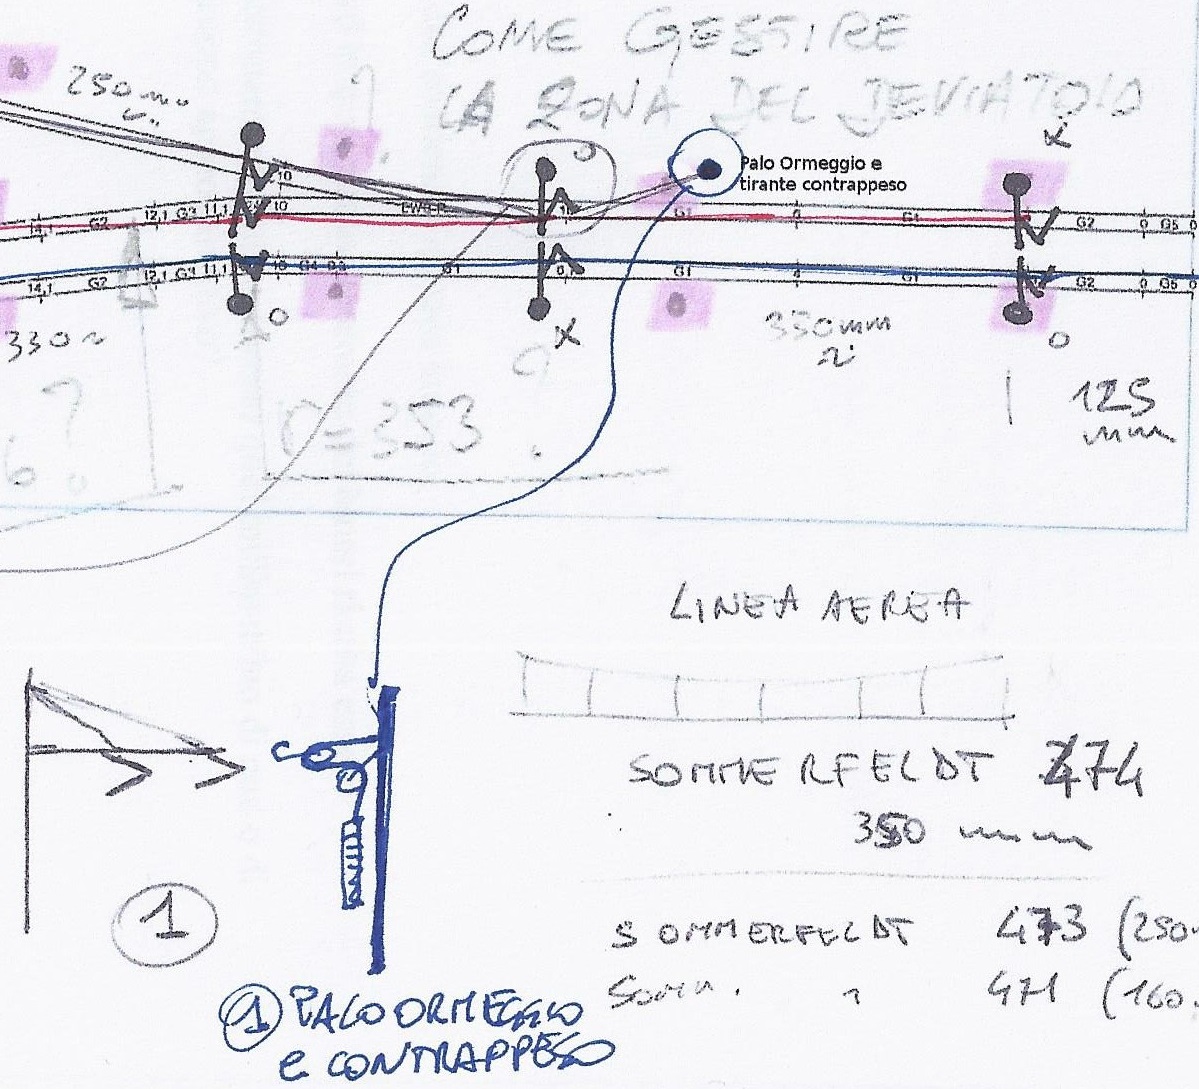 COME GESTIRE
LA ZONA DEL DEVIATOIO
250mm
Palo Ormeggio e
tirante contrappeso
X
10
12,1 G3 11,1
10
EWSR
G1
4
G1
G2
0
G5
0
14,1
G2
14,1
G2
12,1 G3 11,1
G1
G1
4
G1
G2
0
G5
0
330
O
X
350mm
O
125
mm
?
C=353
LINEA AEREA
SOMMERFELDT 474
350 mm
SOMMERFELDT 473 (250
Somm. " 471 (160
1
1 PALO ORMEGGIO
e CONTRAPPESO